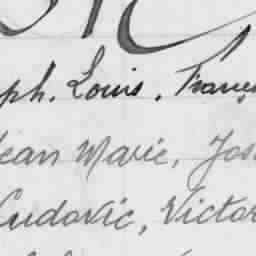 ph. Louis. Franç
Jean Marie, Jos
Ludovic, Victor